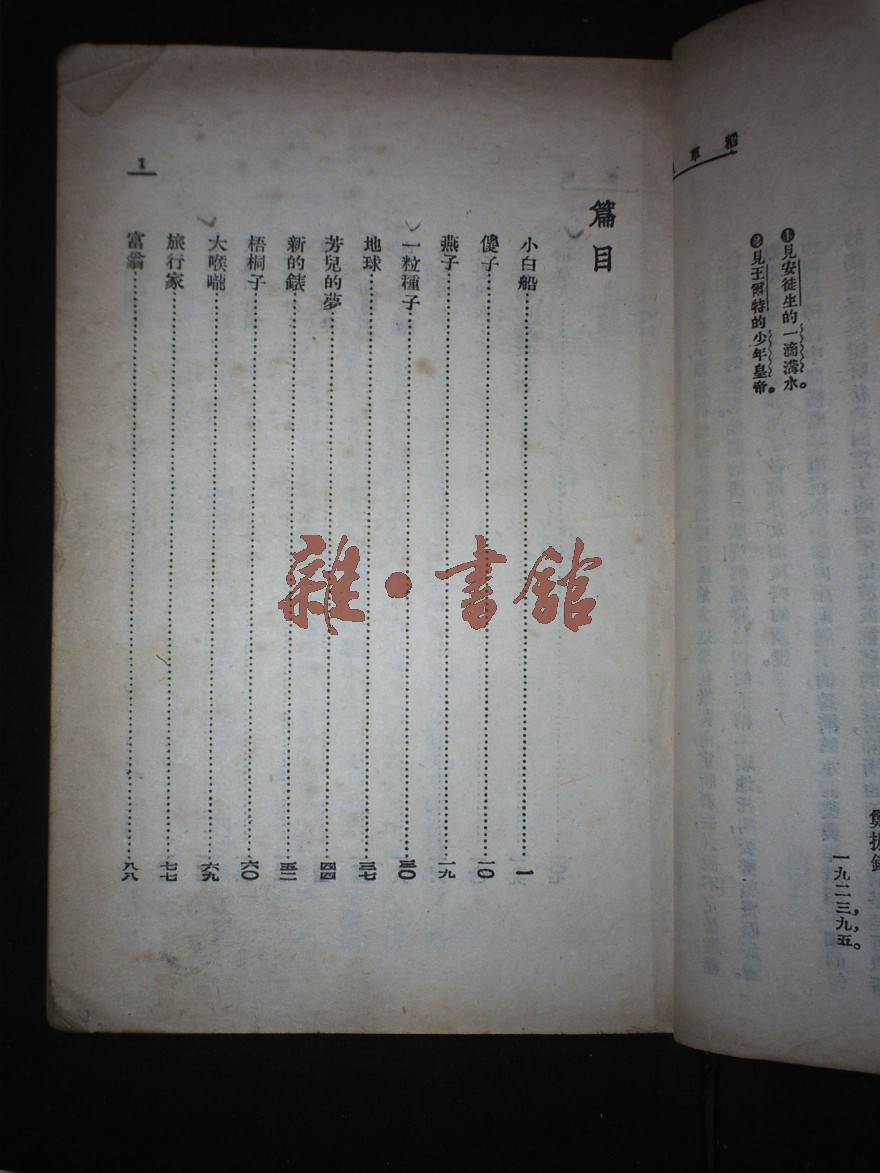 稻草
❶見安徒生的一滴溝水。
❷見王爾特的少年皇帝。
鄭振鐸
一九二三，九，五。
篇目
小白船 一
傻子 一〇
燕子 一九
一粒種子 三〇
地球 三七
芳兒的夢 四四
新的錶 五二
梧桐子 六〇
大喉嚨 六九
旅行家 七七
富翁 八八
1
雜·書舘